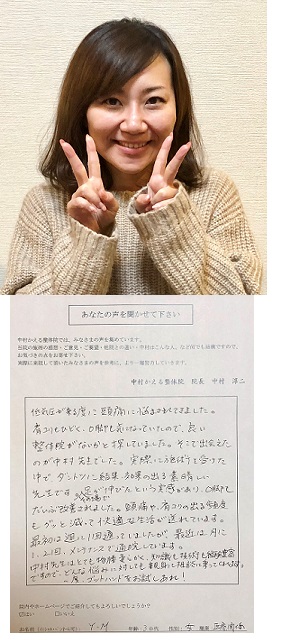 あなたの声を聞かせて下さい
中村かえる整体院では、みなさまの声を集めています。
当院の施術の感想・ご意見・ご要望・他院との違い・中村はこんな人、など何でも結構ですので、
お気づきの点をお書き下さい。
実際に来院して頂いたみなさまの声を参考に、より一層努力していきます。
中村かえる整体院 院長 中村 淳二
低気圧が来る度に頭痛に悩まされてました。
肩コリもひどく、O脚も気になっていたので、良い
整体院がないかと探していました。そこで出会えた
のが中村先生でした。実際に
中で、ダントツに結果・効果の出る素晴しい
先生です。
だいぶ改善されました。頭痛や、肩コリの出る頻度
も、グッと減って快適な生活が送れています。
最初は週に1回通っていましたが、最近は月に
1、2回、メンテナンスで通院しています。
中村先生はとても物腰柔らかく、知識も技術も
ですので、どんな悩みに対しても親身に相談に乗ってくれます。
一度、ゴッドハンドをお試しあれ!
院内やホームページでご紹介してもよろしいでしょうか?
はい いいえ
お名前 Y・M 年齢 30代 性別 女 職業 医療関係